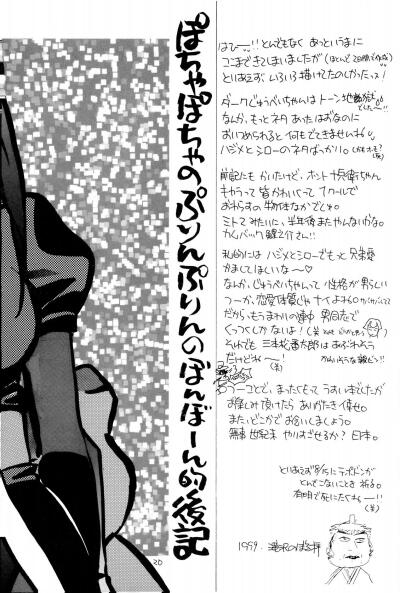 ぽちゃぽちゃのぷりんぷりんのぼんぼーん的後記
はひー!!とんでもなく あっというまに
ここまできてしまいましたが(ほとんど2日間で作成)
とりあえず、いろいろ描けてたのしかったっス!
ダークじゅうべいちゃんはトーン地獄
でした〜!!
なんか、もっとネタあったはずなのに
おいつめられると何もでてきませんね。
ハジメとシローのネタばっかり。
前記にもかいたけど、ホント十兵衛ちゃん
キャラって皆かわいくってイクールで
おわらすの勿体なかでしょ。
ミトてみたいに、半年後またやんないかな。
カムバック鯉之介さん!!
私的にはハジメとシローでもっと兄弟愛
かましてほしいな〜♡
なんか、じゅうべいちゃんって性格が男らしい
つーか、恋愛体質じゃナイよね。
だから、もうまわりの連中 男同志で
くっつくしかないよ!(笑)
それでも三本松番太郎はあぶれそう
だけどね〜!(笑)
つーコトで、まったくもってうすい本でしたが
お楽しみ頂けたらありがたき倖せ。
また、どこかでお会いしましょう。
無事世紀末やりすごせるか?日本。
とりあえず8/15にテポドンが
とんでこないことを祈る。
有明で死にたくねー!!
(笑)
1999.
20